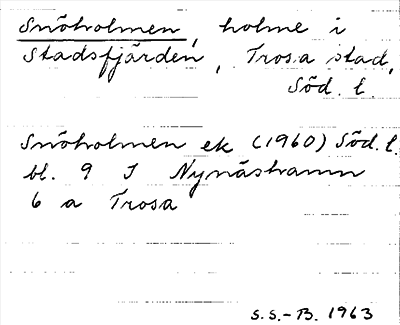 Snöholmen, holme i
Stadsfjärden, Trosa stad,
Söd. l.
Snöholmen ek (1960) Söd. l.
bl. 9 I Nynäshamn
6 a Trosa
S.S.-B. 1963